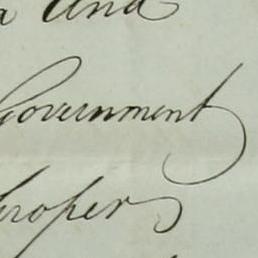 and
Government
proper